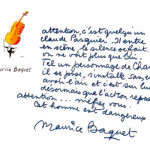 attention, c'est quelqu'un
claude Pasquier. Il entre
en scène, le silence se fait.
on ne voit plus que lui.
Tel un personnage de Cha
il se pose, s'installe, sans
avoir l'air et c'est sur lu
désormais que l'action repose
attention... méfiez vous.
Cet homme est dangereux
Maurice Baquet
Maurice Baquet